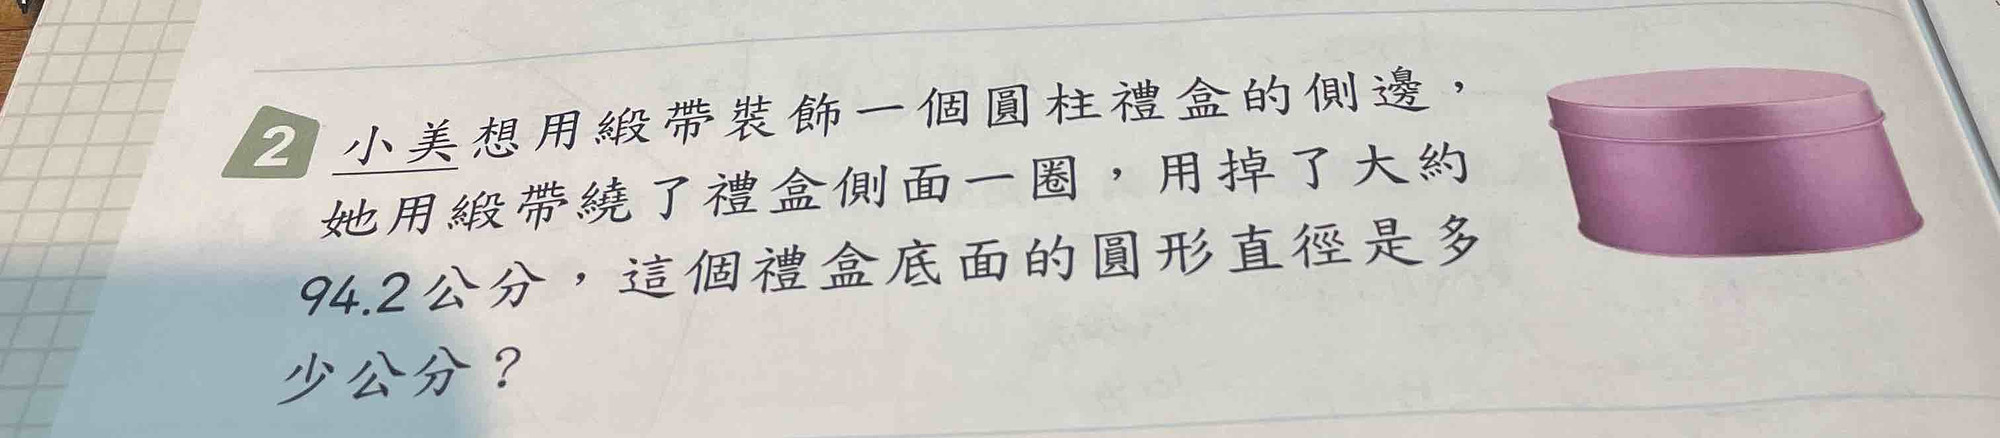 2 小美想用緞帶裝飾一個圓柱禮盒的側邊，
她用緞帶繞了禮盒側面一圈，用掉了大約
94.2公分，這個禮盒底面的圓形直徑是多
少公分？